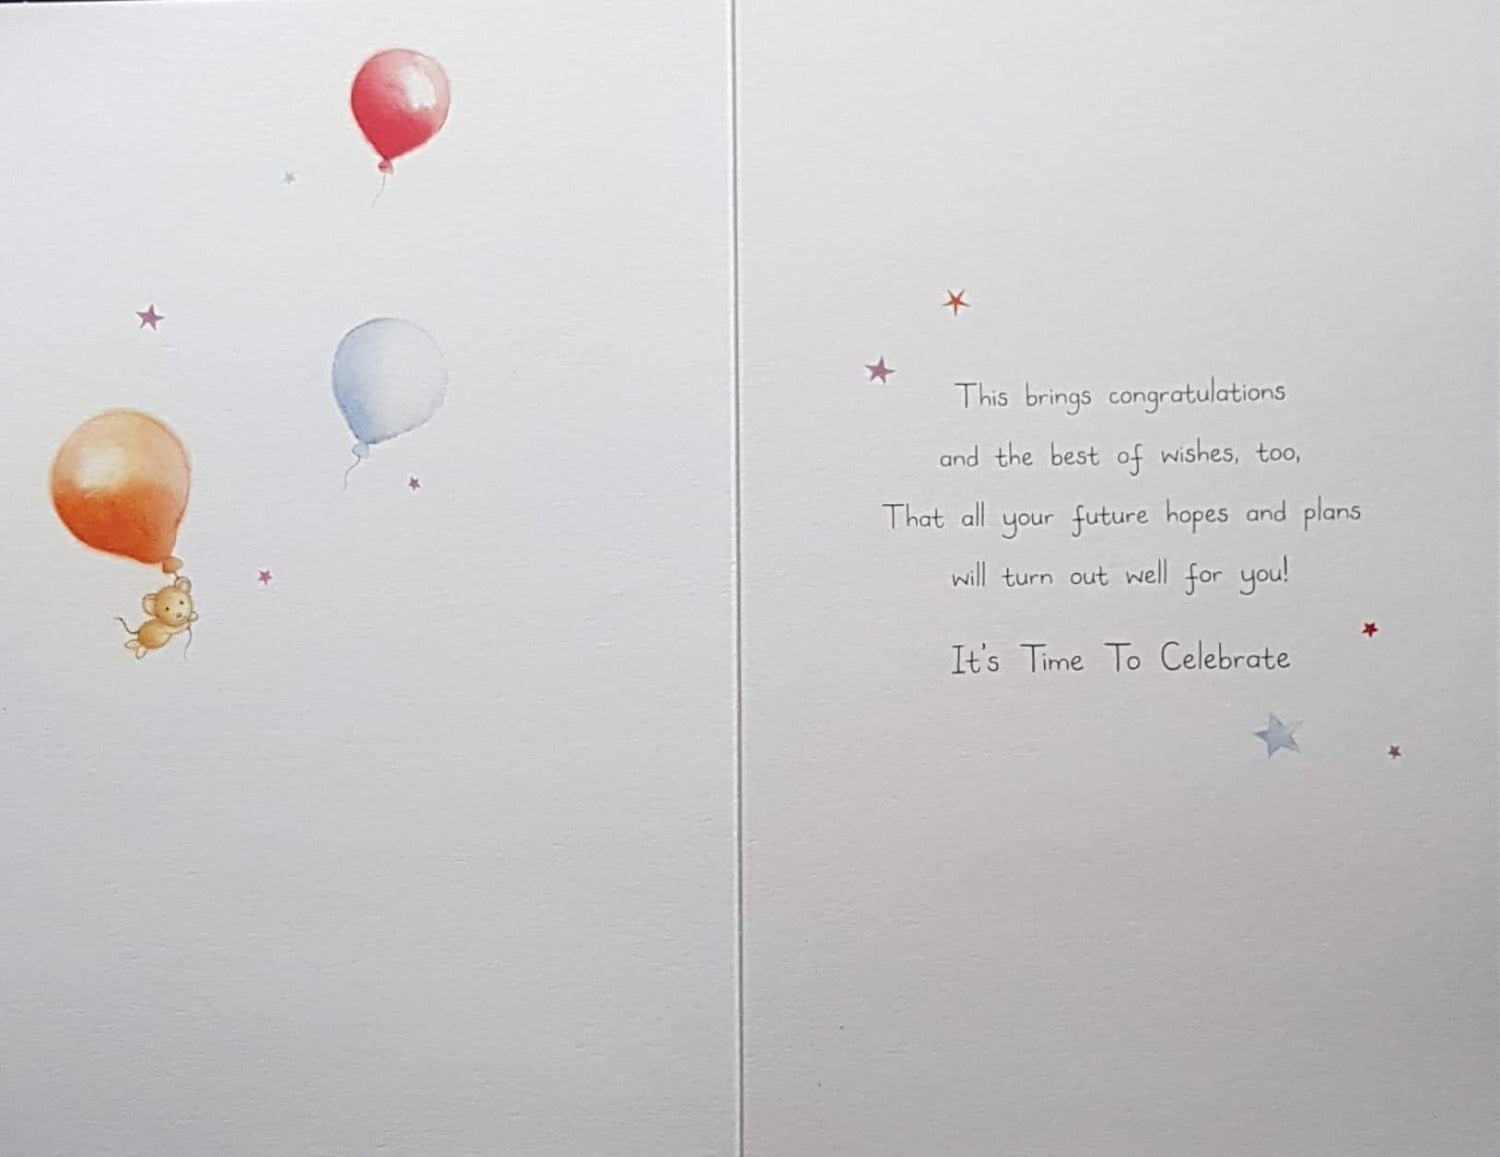 This brings congratulations
and the best of wishes, too,
That all your future hopes and plans
will turn out well for you!
It's Time To Celebrate